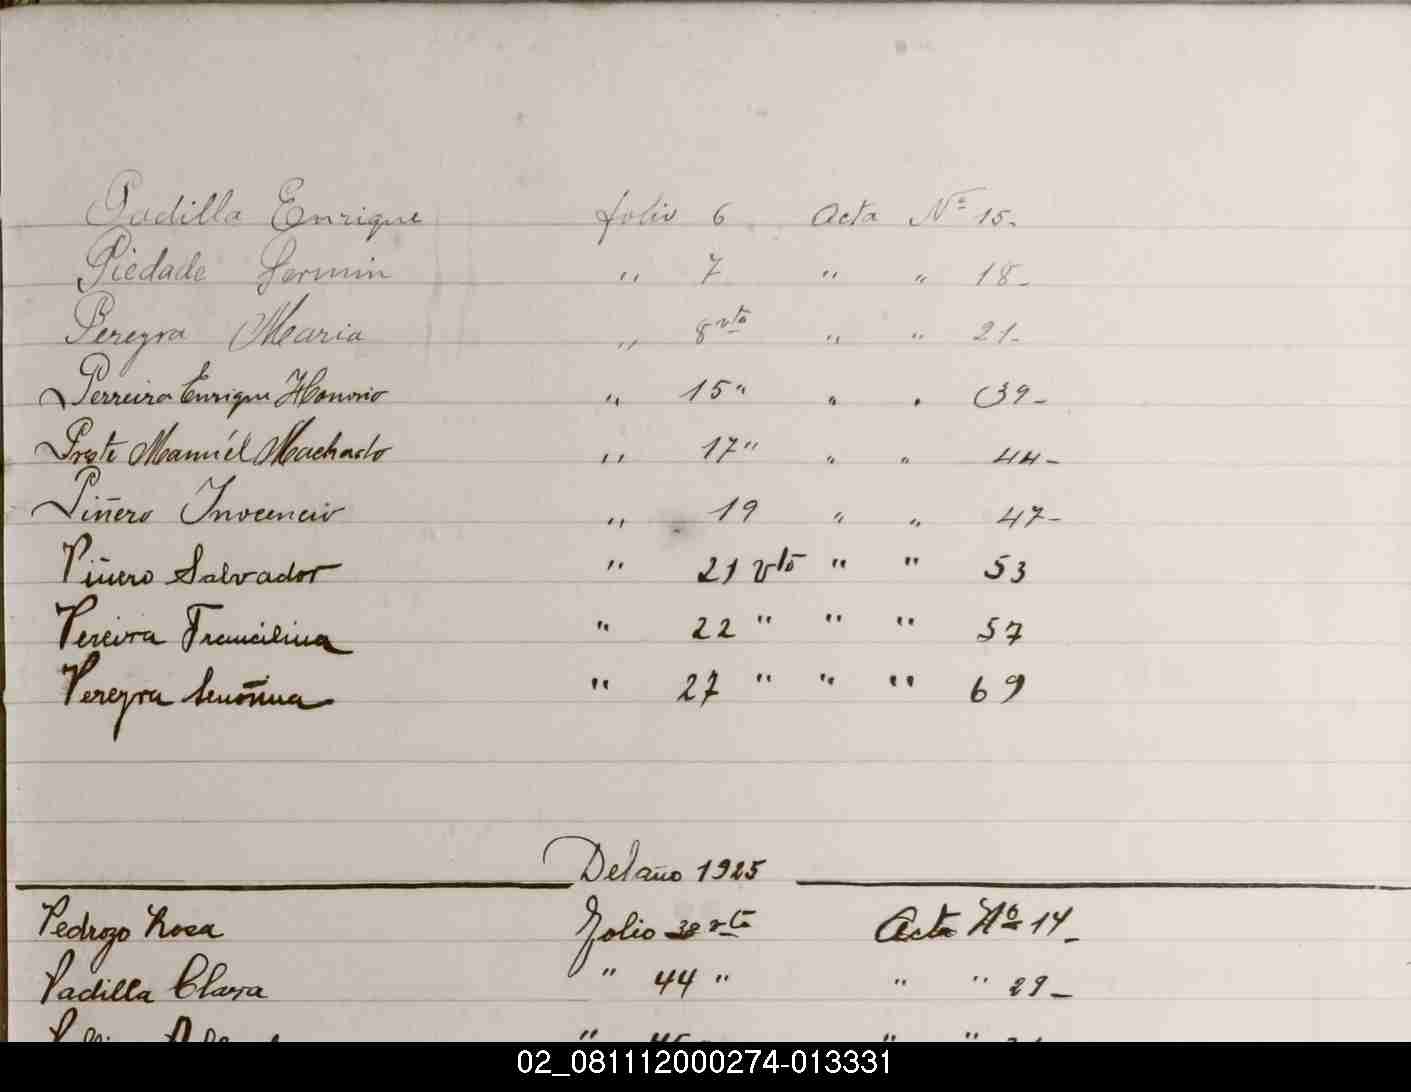 Padilla Enrique folio 6 Acta Nº 15-
Piedade Fermin " 7 " " 18-
Pereyra Maria " 8 vto " " 21-
Perreira Enrique Honorio " 15 " " " 39-
Prste Manuél Machado " 17 " " " 44-
Piñero Inocencio " 19 " " 47-
Piñero Salvador " 21 vto " " 53
Pereira Francilina " 22 " " " 57
Pereyra " 27 " " " 69
Del año 1925
Pedrozo Rosa Folio 38 vto Acta Nº 14-
Padilla Clara " 44 " " " 29-
02_081112000274-013331